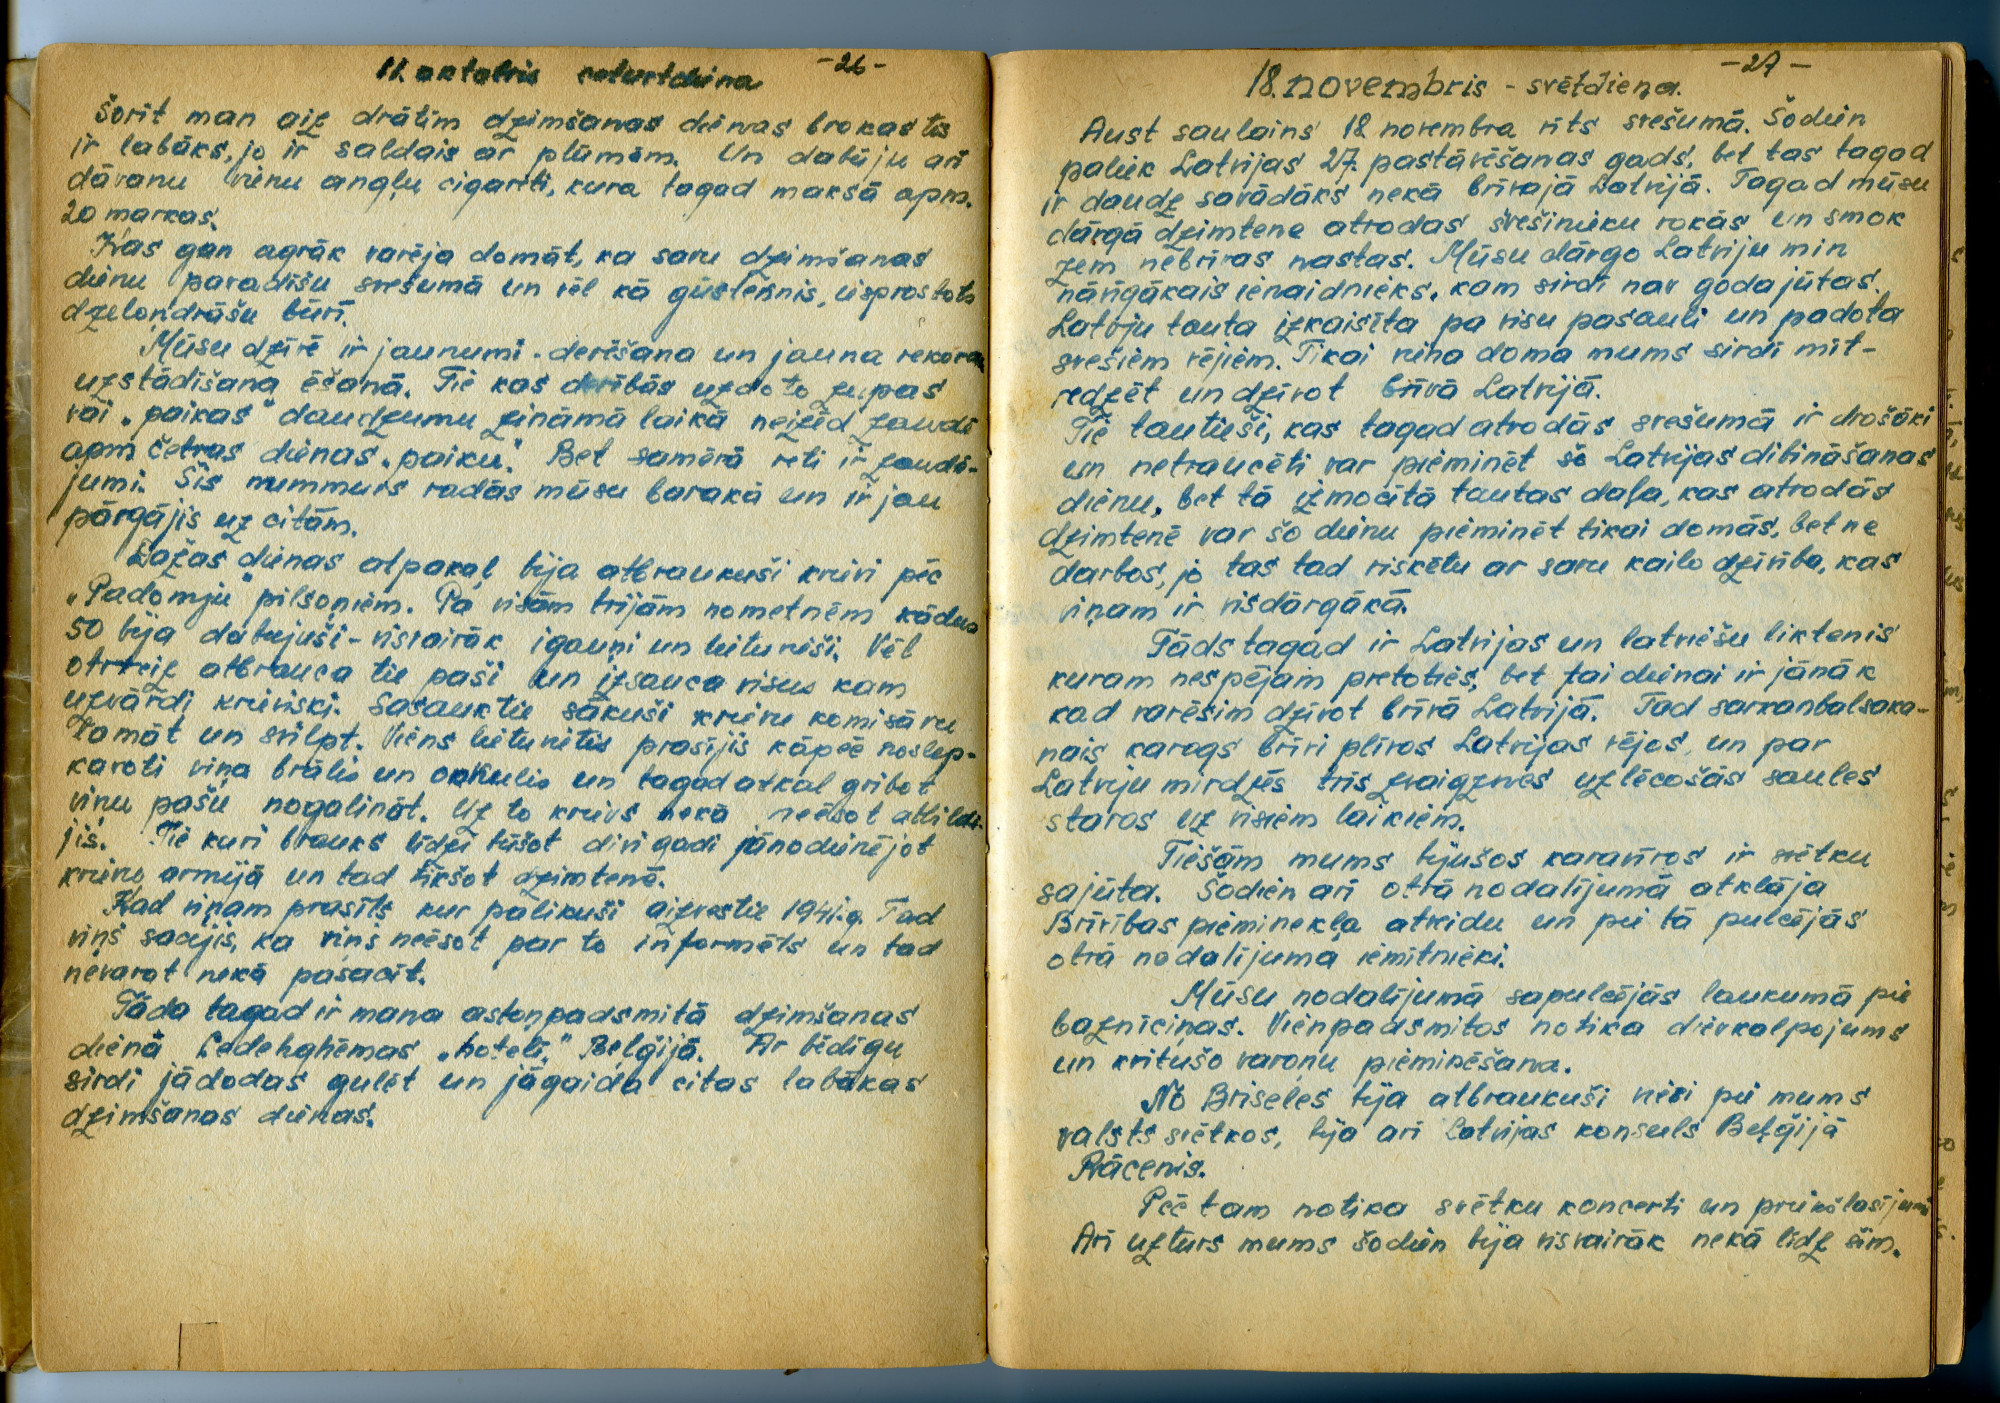 -26-
11. oktobris ceturtdiena
Šorīt man aiz drātīm dzimšanas dienas brokastis
ir labāks, jo ir saldais ar plūmēm. Un dabūju arī
dāvanu vienu angļu cigareti, kura tagad maksā apm.
20 markas.
Kas gan agrāk varēja domāt, ka savu dzimšanas
dienu paradīšu svešumā un vēl kā gūsteknis, iesprostots
dzeloņdrāšu būrī.
Mūsu dzīvē ir jaunumi - derēšana un jauna rekorda
uzstādīšana ēšanā. Tie kas derībās uzdoto zupas
vai „paikas" daudzumu zināmā laikā neizēd zaudē
apm četras dienas „paiku." Bet samērā reti ir zaudē-
jumi. Šis nummurs radās mūsu barakā un ir jau
pārgājis uz citām.
Dažas dienas atpakaļ bija atbraukuši krievi pēc
„Padomju" pilsoņiem. Pa visām trijām nometnēm kādus
50 bija dabujuši - visvairāk igauņi un lietuvieši. Vēl
otrreiz atbrauca tie paši un izsauca visus kam
uzvārdi krieviski. Sasauktie sākuši krievu komisāru
lamāt un svilpt. Viens lietuvietis prasījis kāpēc noslep-
kavoti viņa brālis un onkulis un tagad atkal gribot
viņu pašu nogalināt. Uz to krievs nekā neesot atbildē-
jis. Tie kuri brauks līdzi būšot divi gadi jānodienējot
krievu armijā un tad tikšot dzimtenē.
Kad viņam prasīts kur palikuši aizvestie 1941.g. Tad
viņš sacījis, ka viņš neesot par to informēts un tad
nevarot nekā pasacīt.
Tāda tagad ir mana astoņpadsmitā dzimšanas
dienā Cedelghēmas „hotelī," Beļģijā. Ar bēdīgu
sirdi jādodas gulēt un jāgaida citas labākas
dzimšanas dienas.
-27-
18. novembris - svētdiena.
Aust saulains 18 novembra rīts svešumā. Šodien
paliek Latvijas 27. pastāvēšanas gads, bet tas tagad
ir daudz savādāks nekā brīvajā Latvijā. Tagad mūsu
dārgā dzimtene atrodas svešinieku rokās un smok
zem nebrīvas nastas. Mūsu dārgo Latviju min
nāvīgākais ienaidnieks, kam sirdī nav goda jūtas.
Latvju tauta izkaisīta pa visu pasauli un padota
svešiem vējiem. Tikai viena doma mums sirdī mīt-
redzēt un dzīvot brīvā Latvijā.
Tie tautieši, kas tagad atrodās svešumā ir drošāki
un netraucēti var pieminēt šo Latvijas dibināšanas
dienu, bet tā izmocītā tautas daļa, kas atrodās
dzimtenē var šo dienu pieminēt tikai domās, bet ne
darbos, jo tas tad riskētu ar savu kailo dzīvību, kas
viņam ir visdārgākā.
Tāds tagad ir Latvijas un latviešu liktenis
kuram nespējam pretoties, bet tai dienai ir jānāk
kad varēsim dzīvot brīvā Latvijā. Tad sarkanbalsarka-
nais karogs brīvi plīvos Latvijas vējos, un par
Latviju mirdzēs trīs zvaigznes uzlēcošās saules
staros uz visiem laikiem.
Tiešām mums bijušos karavīros ir svētku
sajūta. Šodien arī otrā nodalījumā atklāja
Brīvības pieminekļa atveidu un pie tā pulcējās
otrā nodalījuma iemītnieki.
Mūsu nodalījumā sapulcējās laukumā pie
baznīciņas. Vienpadsmitos notika dievkalpojums
un kritušo varoņu pieminēšana.
No Briseles bija atbraukuši viesi pie mums
valsts svētkos, bija arī Latvijas konsuls Beļģijā
Rācenis.
Pēc tam notika svētku koncerti un priekšlasījumi
Arī uzturs mums šodien bija visvairāk nekā līdz šim.